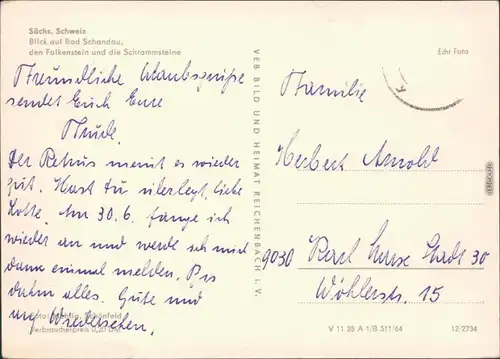 Sächs. Schweiz
Blick auf Bad Schandau,
den Falkenstein und die Schrammsteine
Echt Foto
Freundliche Urlaubsgrüße
sendet Euch Eure
Trude.
Der Petrus meint es wieder
gut. Hast Du überlegt, liebe
Lotte. Am 30.6. fange ich
wieder an und werde ich mich
dann einmal melden. Bis
dahin alles Gute und
auf Wiedersehen.
VEB BILD UND HEIMAT REICHENBACH I. V.
Familie
Herbert Arnold
9030 Karl Marx Stadt 30
Wöhlerstr. 15
Schönfeld
Verbraucherpreis 0,20 DM
V 11.28 A 1/B 511/64
12/2734